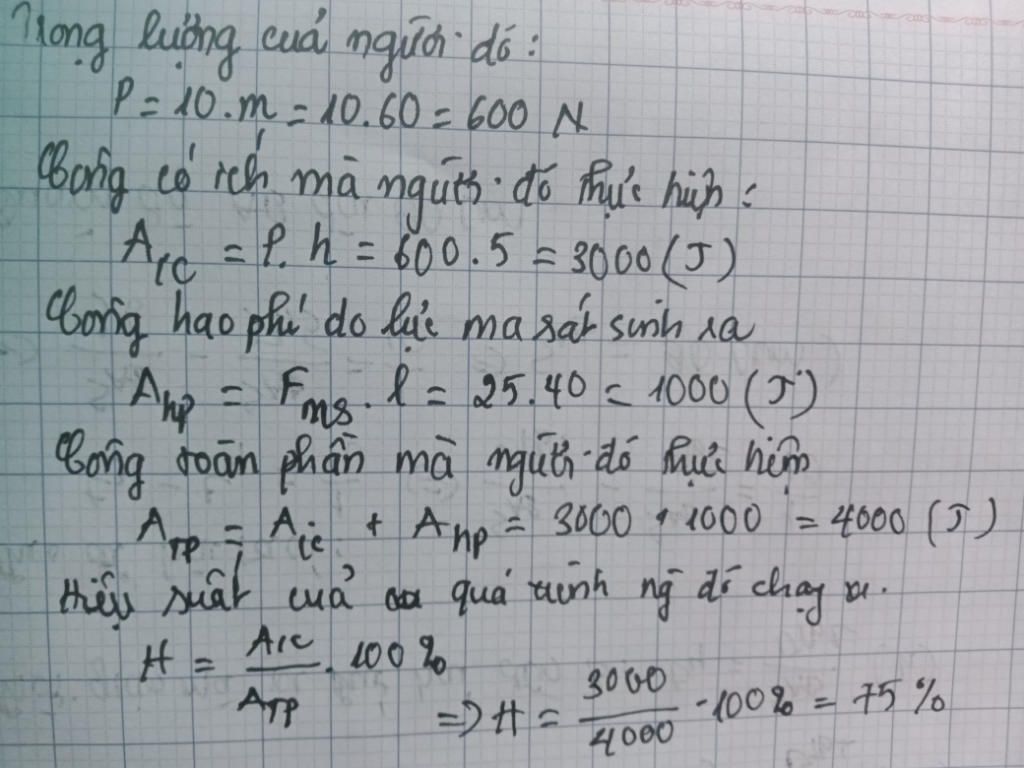 Trọng lượng của người đó:
P = 10.m = 10.60 = 600 N
Công có ích mà người đó thực hiện:
A_ic = P. h = 600.5 = 3000 (J)
Công hao phí do lực ma sát sinh ra
A_hp = F_ms. l = 25.40 = 1000 (J)
Công toàn phần mà người đó thực hiện
A_TP = A_ic + A_hp = 3000 + 1000 = 4000 (J)
Hiệu suất của quá trình ng đó chạy
H = A_ic / A_TP . 100%
=> H = 3000 / 4000 . 100% = 75 %